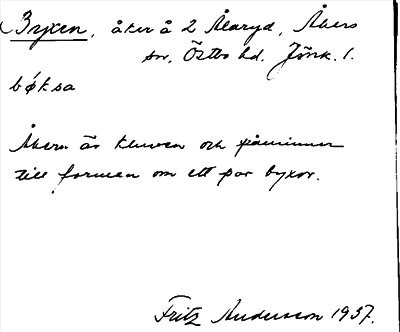 Bryxen, åker å 2 Ålaryd, Åkers
sn, Östbo hd. Jönk. l.
bøksa
Åkern är kluven och påminner
till formen om ett par byxor.
Fritz Andersson 1937.